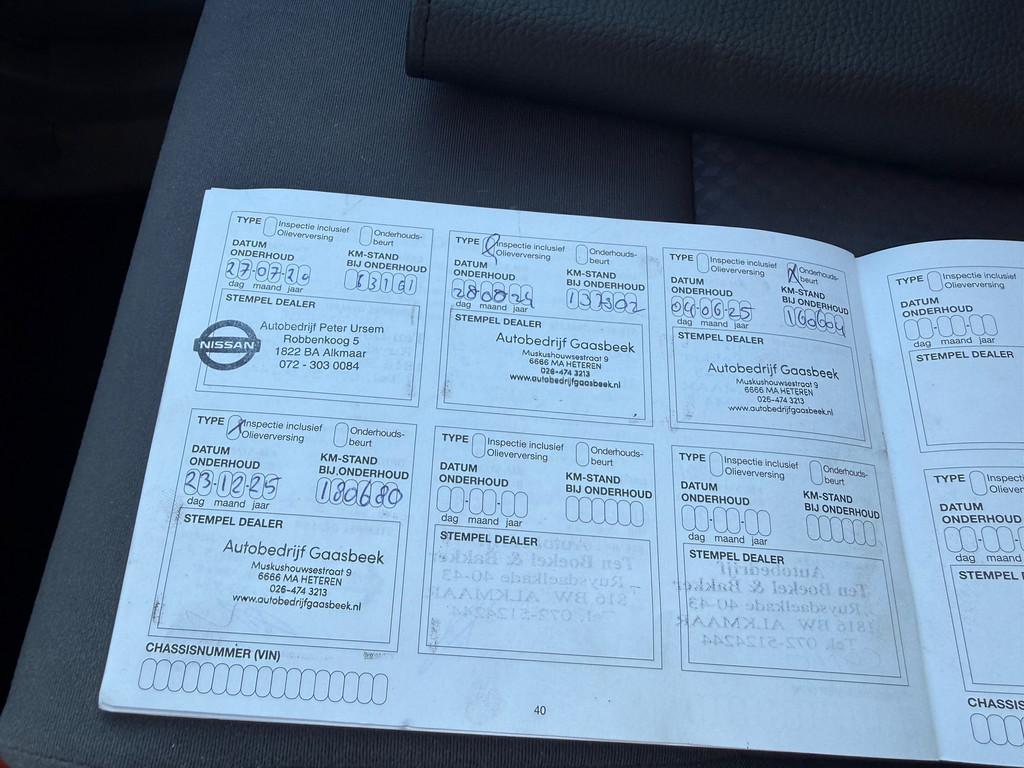 TYPE Inspectie inclusief Olieverversing Onderhouds-beurt
DATUM ONDERHOUD
KM-STAND BIJ ONDERHOUD
27-07-20
63161
dag maand jaar
STEMPEL DEALER
NISSAN
Autobedrijf Peter Ursem
Robbenkoog 5
1822 BA Alkmaar
072 - 303 0084
TYPE Inspectie inclusief Olieverversing Onderhouds-beurt
DATUM ONDERHOUD
KM-STAND BIJ ONDERHOUD
28-08-24
137302
dag maand jaar
STEMPEL DEALER
Autobedrijf Gaasbeek
Muskushouwsestraat 9
6666 MA HETEREN
026-474 3213
www.autobedrijfgaasbeek.nl
TYPE Inspectie inclusief Olieverversing Onderhouds-beurt
DATUM ONDERHOUD
KM-STAND BIJ ONDERHOUD
04-06-25
160604
dag maand jaar
STEMPEL DEALER
Autobedrijf Gaasbeek
Muskushouwsestraat 9
6666 MA HETEREN
026-474 3213
www.autobedrijfgaasbeek.nl
TYPE Inspectie inclusief Olieverversing Onderhouds-beurt
DATUM ONDERHOUD
KM-STAND BIJ ONDERHOUD
23-12-25
180680
dag maand jaar
STEMPEL DEALER
Autobedrijf Gaasbeek
Muskushouwsestraat 9
6666 MA HETEREN
026-474 3213
www.autobedrijfgaasbeek.nl
TYPE Inspectie inclusief Olieverversing Onderhouds-beurt
DATUM ONDERHOUD
KM-STAND BIJ ONDERHOUD
dag maand jaar
STEMPEL DEALER
TYPE Inspectie inclusief Olieverversing Onderhouds-beurt
DATUM ONDERHOUD
KM-STAND BIJ ONDERHOUD
dag maand jaar
STEMPEL DEALER
Autobedrijf
Ten Boekel & Bakker
Ruysdaelkade 40-43
1816 BW ALKMAAR
Tel. 072-5124244
CHASSISNUMMER (VIN)
40
TYPE Inspectie inclusief Olieverversing
DATUM ONDERHOUD
dag maand jaar
STEMPEL DEALER
TYPE Inspectie Oliever
DATUM ONDERHOUD
dag maand
STEMPEL
CHASSIS